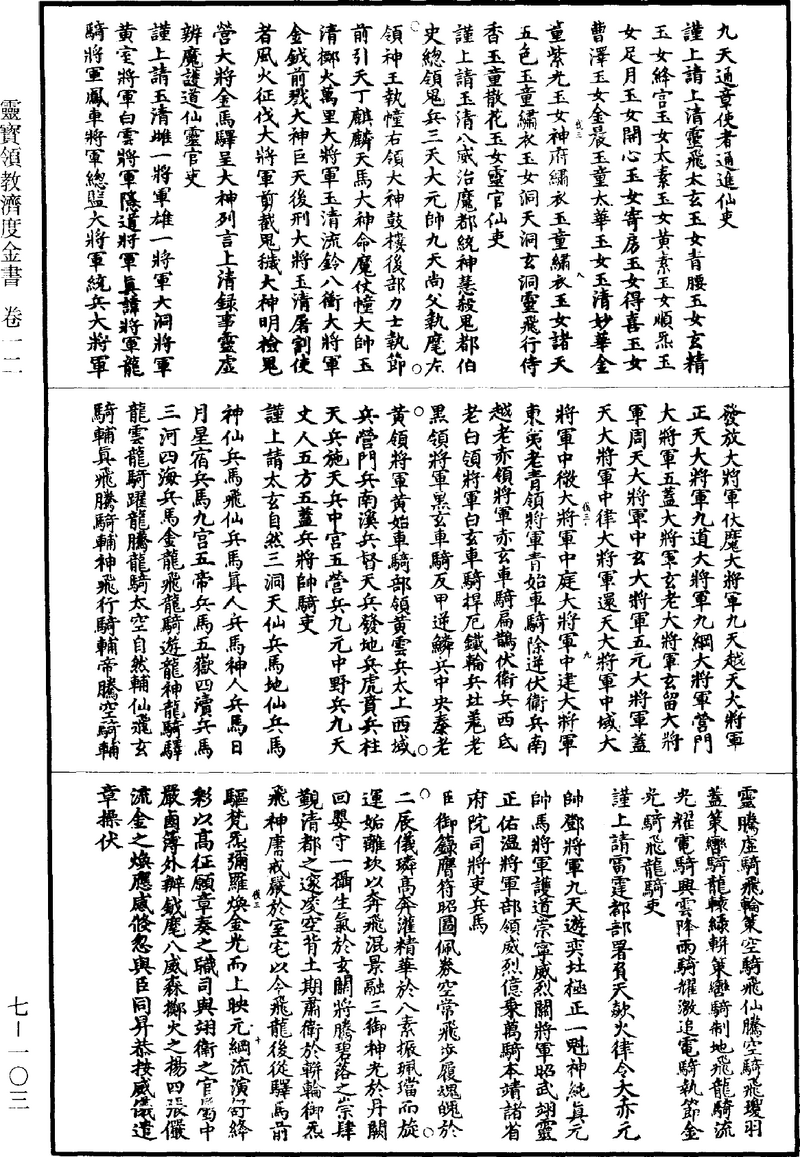 靈寶領教濟度金書 卷一一二
七—一〇三
九天通章使者通進仙吏
謹上請上清靈飛太玄玉女青腰玉女玄精
玉女絳宮玉女太素玉女黃素玉女順炁玉
女足月玉女開心玉女寄房玉女得喜玉女
曹澤玉女金晨玉童太華玉女玉清妙華金
童紫光玉女神府繡衣玉童繡衣玉女諸天
五色玉童繡衣玉女洞天洞玄洞靈飛行侍
香玉童散花玉女靈官仙吏
謹上請玉清八威治魔都統神慧殺鬼都伯
史總領鬼兵三天大元帥九天尚父執麾左
領神王執幢右領大神鼓㨾後部力士執節
前引天丁麒麟天馬大神命魔仗幢大帥玉
清擲火萬里大將軍玉清流鈴八衝大將軍
金鉞前戮大神巨天後刑大將玉清屠割使
者風火征伐大將軍剪截鬼穢大神明檢鬼
營大將金馬驛呈大神列言上清錄事靈虛
辨魔護道仙靈官吏
謹上請玉清雌一將軍雄一將軍大洞將軍
黃室將軍白雲將軍隱道將軍真諱將軍龍
騎將軍鳳車將軍總監大將軍統兵大將軍
發放大將軍伏魔大將軍九天越天大將軍
正天大將軍九道大將軍九綱大將軍營門
大將軍五蓋大將軍玄老大將軍玄留大將
軍周天大將軍中玄大將軍五元大將軍蓋
天大將軍中律大將軍還天大將軍中域大
將軍中徵大將軍中庭大將軍中建大將軍
東夷老青領將軍青始車騎除逆伏衛兵南
越老赤領將軍赤玄車騎扁鵲伏衛兵西氐
老白領將軍白玄車騎捍厄鐵輪兵北羗老
黑領將軍黑玄車騎反甲逆鱗兵中央秦老
黃領將軍黃始車騎部領黃雲兵太上西城
兵營門兵南溪兵督天兵發地兵虎賁兵柱
天兵施天兵中宮五營兵九元中野兵九天
丈人五方五蓋兵將帥騎吏
謹上請太玄自然三洞天仙兵馬地仙兵馬
神仙兵馬飛仙兵馬真人兵馬神人兵馬日
月星宿兵馬九宮五帝兵馬五嶽四瀆兵馬
三河四海兵馬金龍飛龍騎遊龍神龍騎驛
龍雲龍騎躍龍騰龍騎太空自然輔仙飛玄
騎輔真飛騰騎輔神飛行騎輔帝騰空騎輔
靈騰虛騎飛輪策空騎飛仙騰空騎飛瓊羽
蓋策轡騎龍轅綠軿策轡騎制地飛龍騎流
光耀電騎興雲降雨騎耀激追電騎執節金
光騎飛龍騎吏
謹上請雷霆都部署負天欻火律令大赤元
帥鄧將軍九天遊奕北極正一魁神純真元
帥馬將軍護道崇寧威烈關將軍昭武翊靈
正佑溫將軍部領威烈億乘萬騎本靖諸省
府院司將吏兵馬
臣御錄膺符昭圖佩券空常飛步履魂魄於
二辰儀璘高奔灌精華於八素振珮璫而旋
運姤離坎以奔飛混景融三御神光於丹闕
回嬰守一攝生氣於玄關將騰碧落之崇肆
覲清都之邃凌空背土期肅衛於軿輪御炁
飛神庸戒嚴於室宅以今飛龍後從驛馬前
驅梵炁彌羅煥金光而上映元綱流演䓁絳
彩以高征願章奏之職司與翊衛之官寮中
嚴鹵簿外辦鉞麾八威森擲火之揚四張儼
流金之煥應感倏忽與臣同昇恭按威儀遣
章操伏